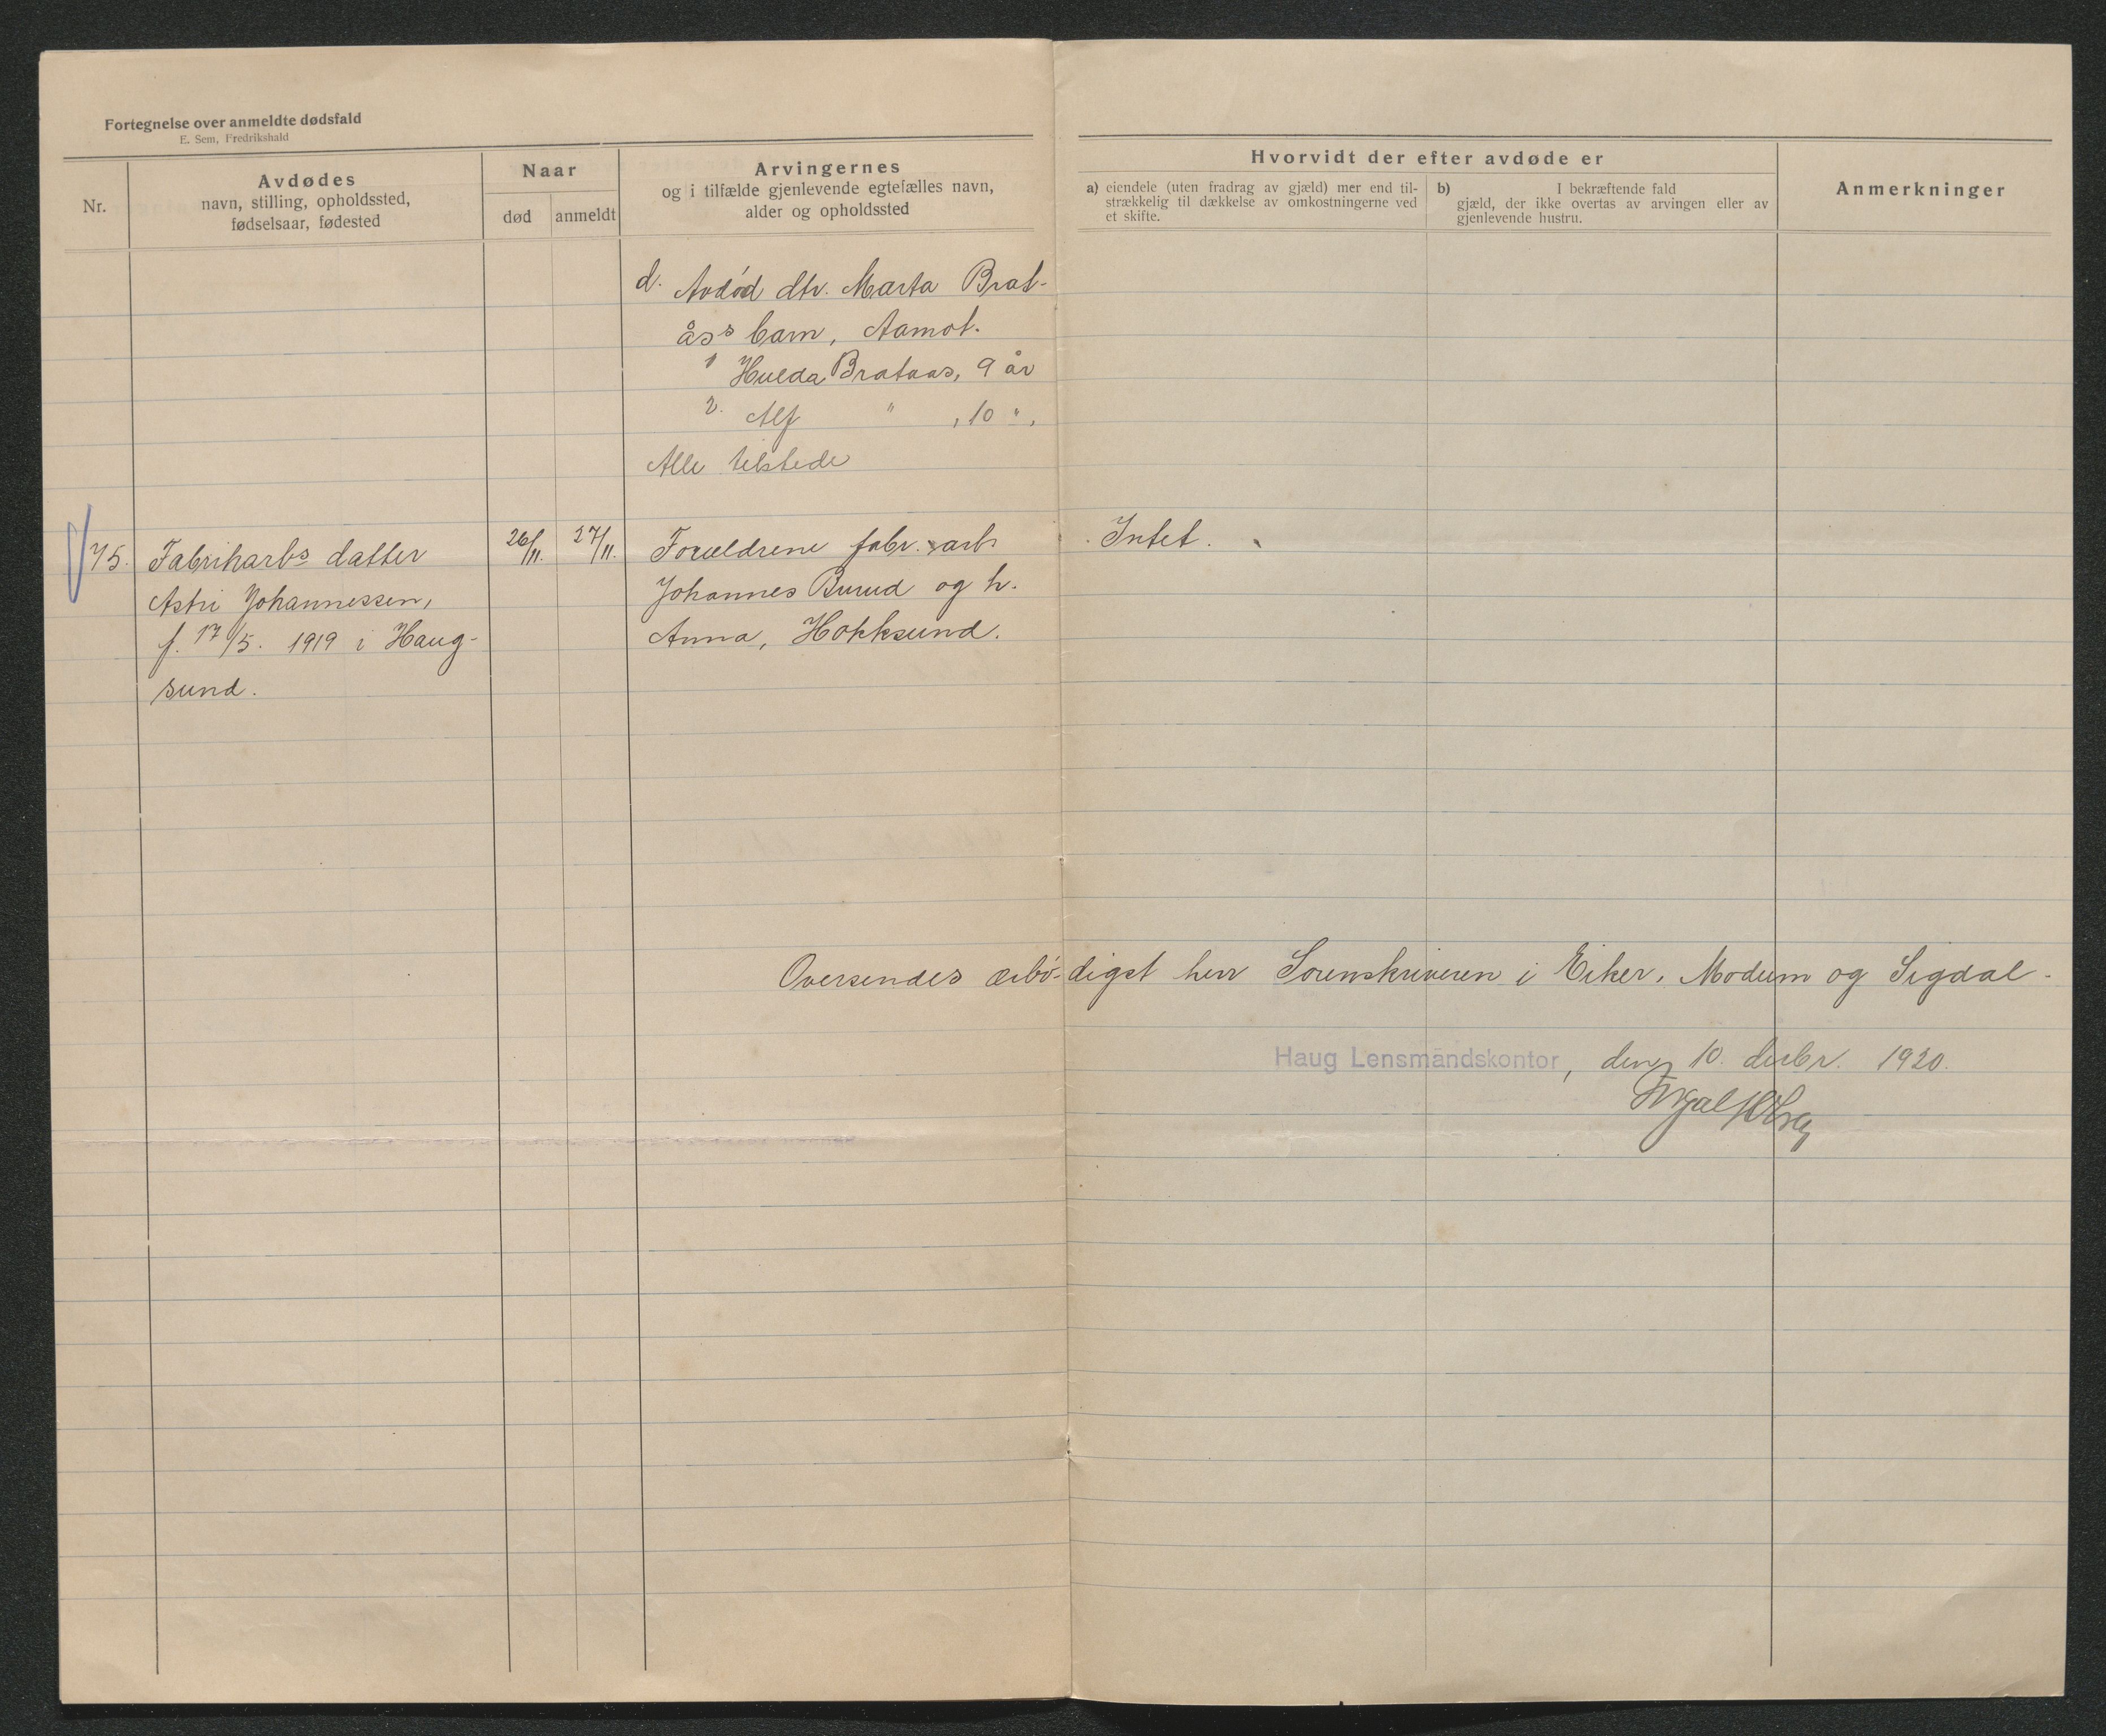 Fortegnelse over anmeldte dødsfald
E. Sem, Fredrikshald
Nr.
Avdødes
navn, stilling, opholdssted,
fødselsaar, fødested
Naar
død
anmeldt
Arvingernes
og i tilfælde gjenlevende egtefælles navn,
alder og opholdssted
Hvorvidt der efter avdøde er
a) eiendele (uten fradrag av gjæld) mer end til-
strækkelig til dækkelse av omkostningerne ved
et skifte.
b) I bekræftende fald
gjæld, der ikke overtas av arvingen eller av
gjenlevende hustru.
Anmerkninger
d. Avdød dtr. Marta Brat-
åss barn, Aamot.
1 Hulda Brataas, 9 år
2. Alf " , 10 ",
Alle tilstede
75.
Fabrikarbs datter
Astri Johannessen,
f. 17/5. 1919 i Haug-
sund.
26/11.
27/11.
Forældrene fabr. arb.
Johannes Burud og h.
Anna, Hokksund.
Intet.
Oversendes ærbødigst herr Sorenskriveren i Eiker, Modum og Sigdal.
Haug Lensmandskontor, den 10. desbr. 1920.